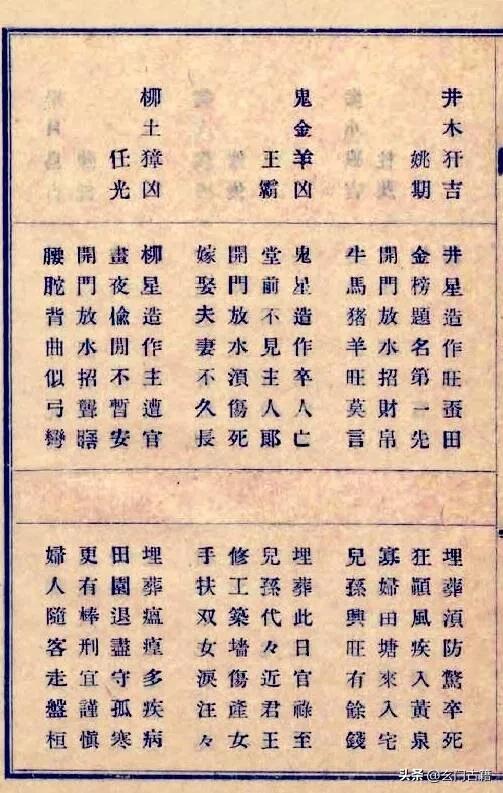 井木犴吉
姚期
鬼金羊凶
王霸
柳土獐凶
任光
井星造作旺蚕田
金榜題名第一先
開門放水招財帛
牛馬猪羊旺莫言
鬼星造作卒人亡
堂前不見主人郎
開門放水湏傷死
嫁娶夫妻不久長
柳星造作主遭官
晝夜偸閒不暫安
開門放水招聾瞎
腰駝背曲似弓彎
埋葬湏防驚卒死
狂顚風疾入黃泉
寡婦田塘來入宅
兒孫興旺有餘錢
埋葬此日官祿至
兒孫代々近君王
修工築墻傷產女
手扶双女淚汪々
埋葬瘟㾮多疾病
田園退盡守孤寒
更有棒刑宜謹愼
婦人隨客走盤桓
头条@玄门古籍